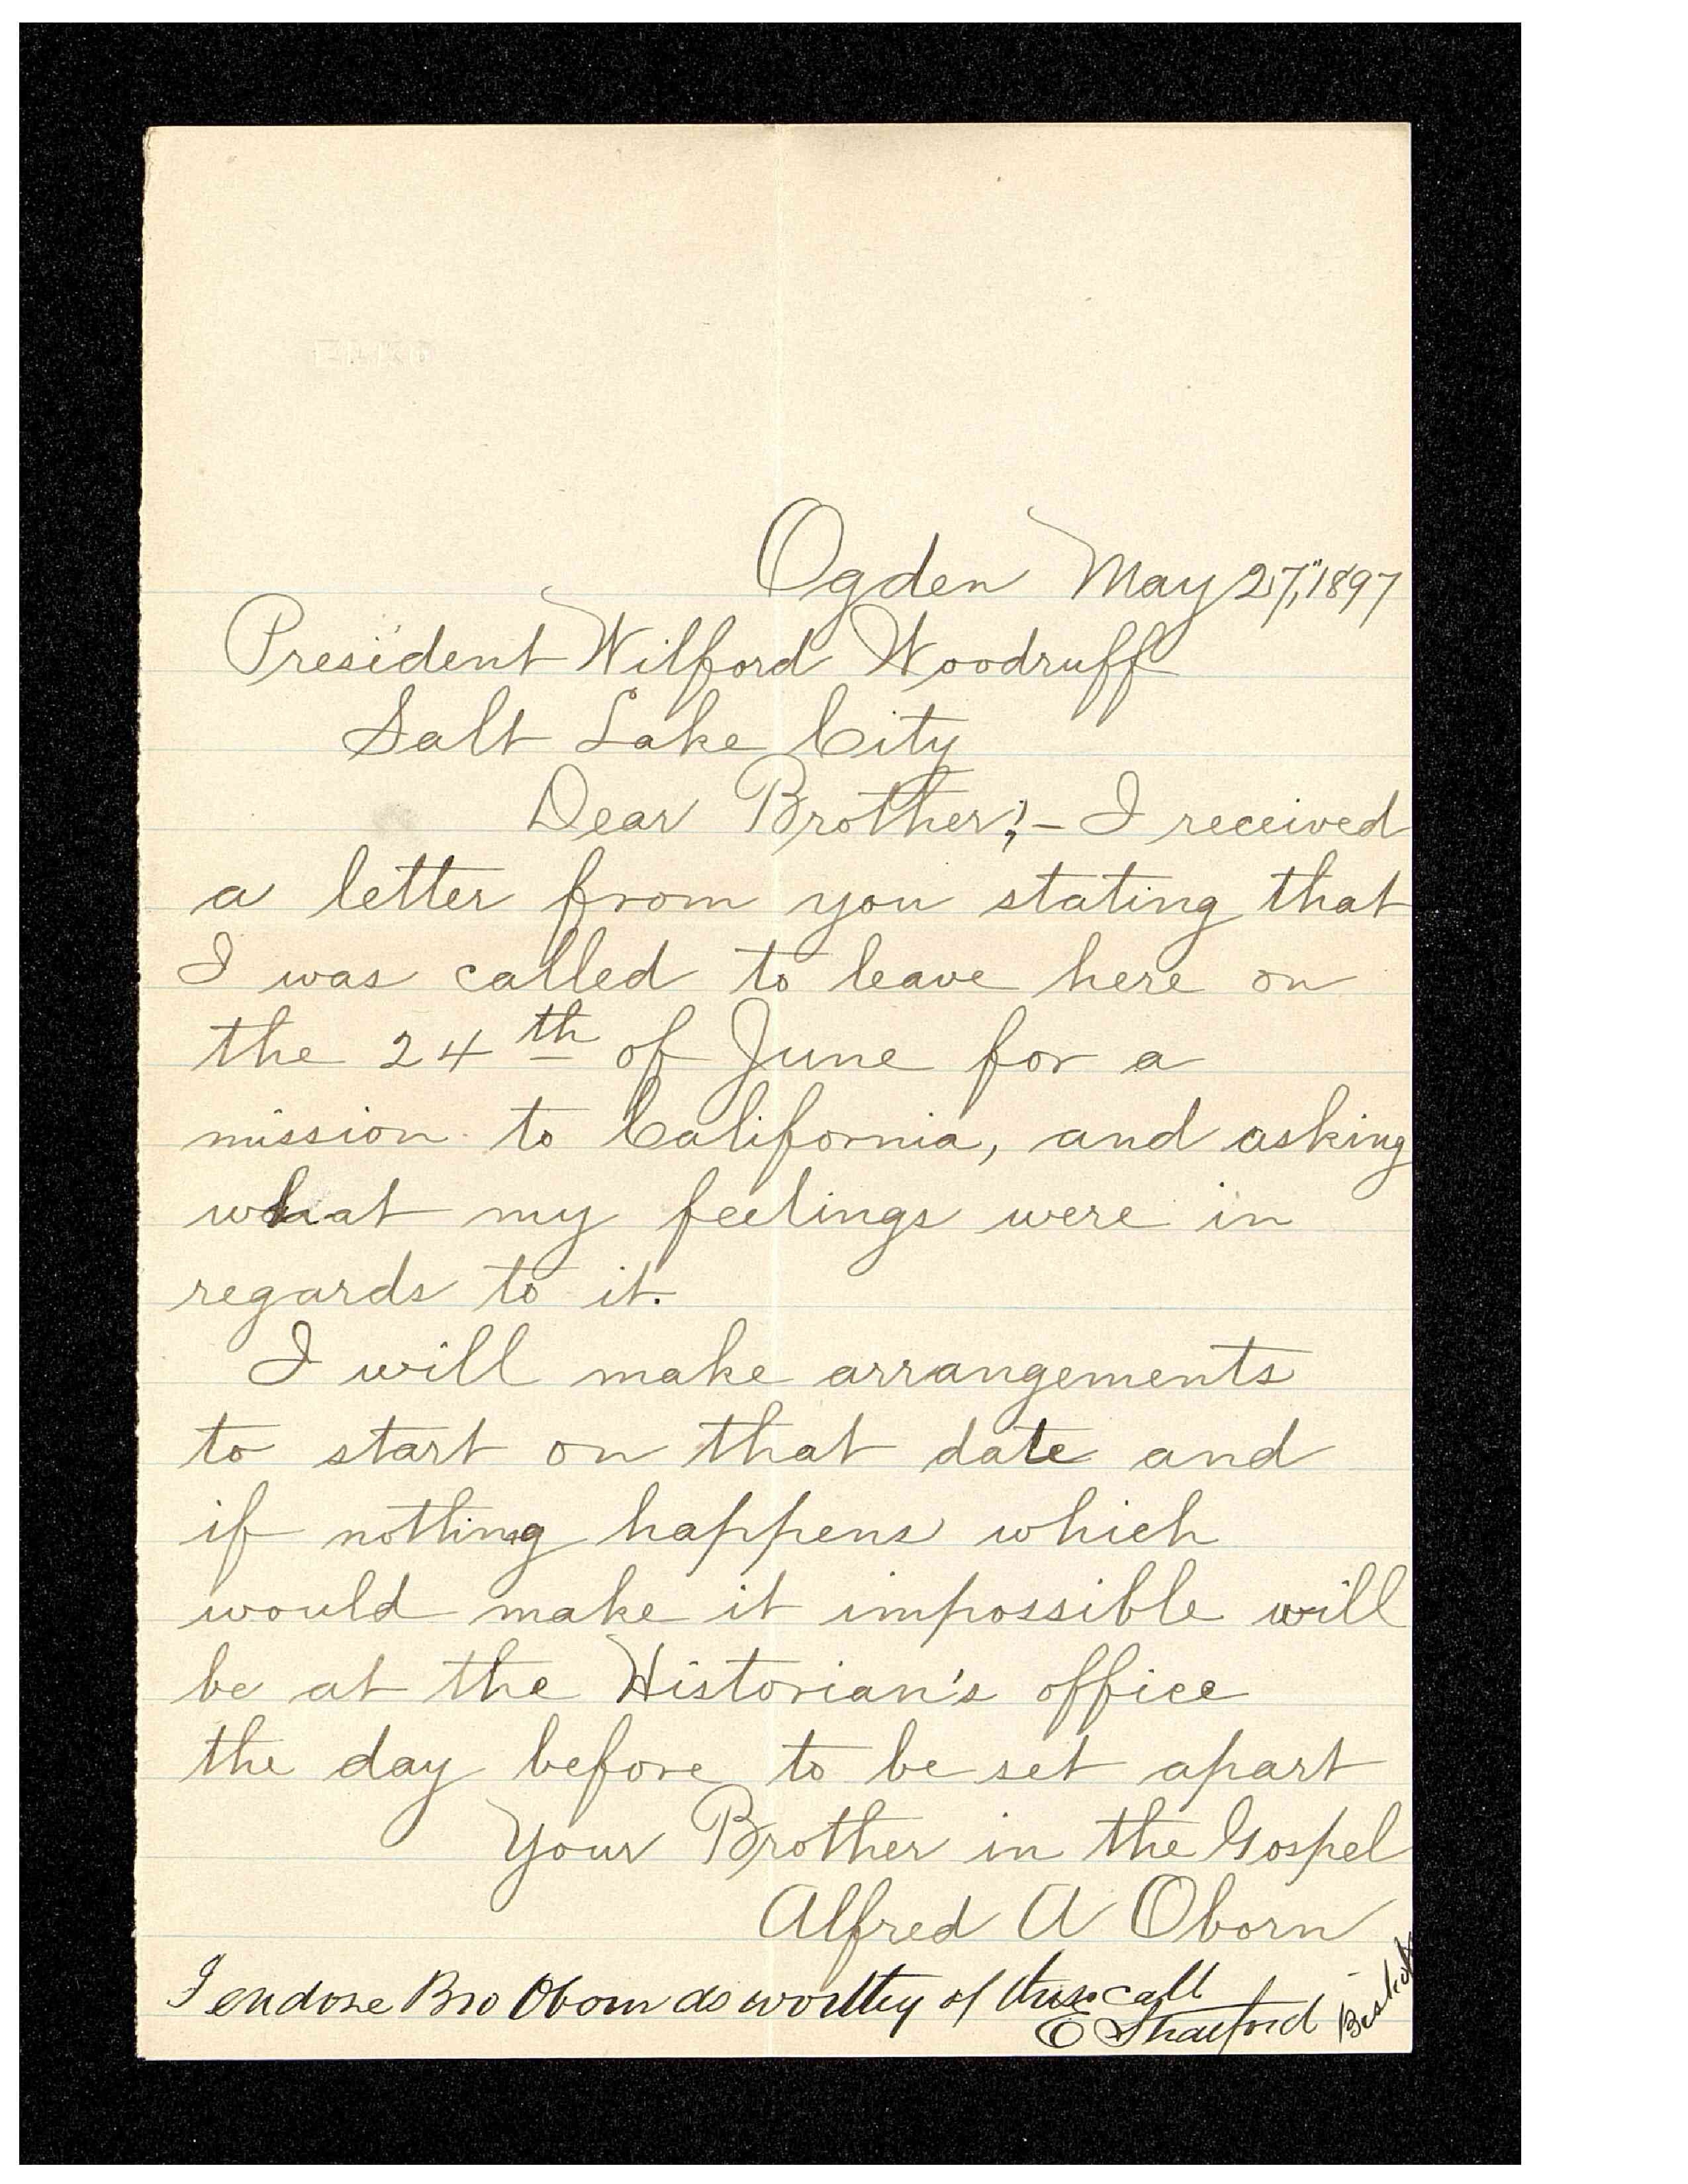 Ogden May 27," 1897
President Wilford Woodruff
Salt Lake City
Dear Brother;- I received
a letter from you stating that
I was called to leave here on
the 24th of June for a
mission to California, and asking
what my feelings were in
regards to it.
I will make arrangements
to start on that date and
if nothing happens which
would make it impossible will
be at the Historian's office
the day before to be set apart
Your Brother in the Gospel
Alfred A Oborn
I endorse Bro Oborn as worthy of this call
E Stratford Bishop